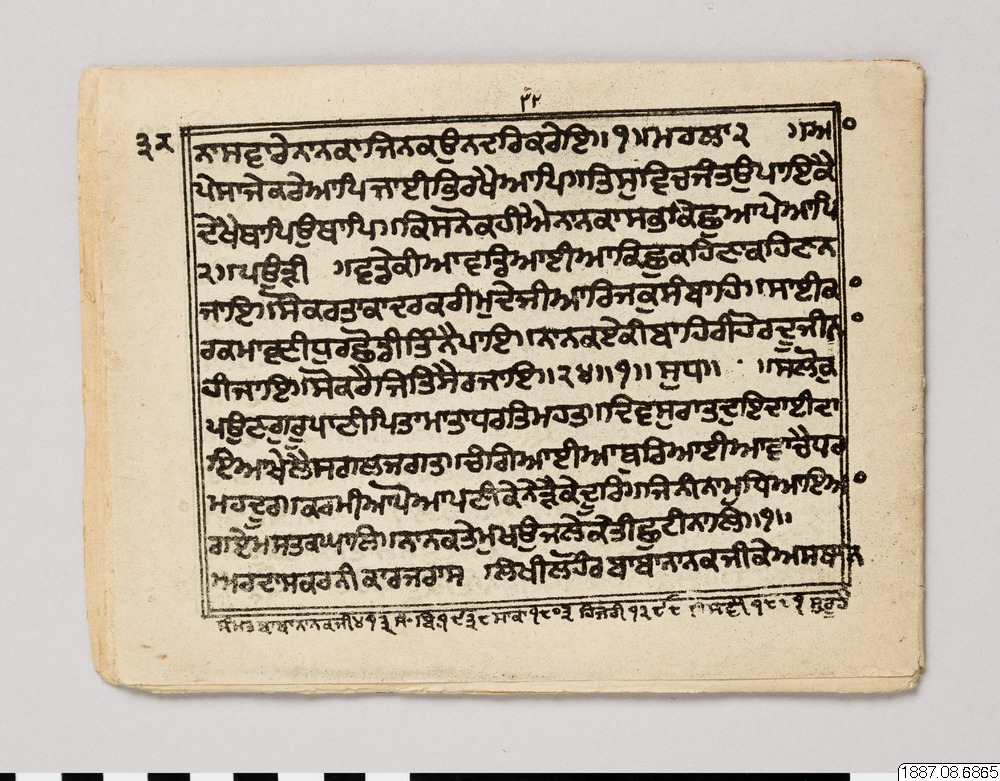 ੨੨
੩੨
ਨਾਸਵਾਰੇਨਾਨਕਾਜਿਨਕਉਨਦਰਿਕਰੇਇ॥੧॥ਮਹਲਾ੨ ॥ਅ
ਪੇਸਾਜੇਕਰੇਆਪਿਜਾਈਭਿਰਖੈਆਪਿ॥ਤਿਸੁਵਿਚਜੰਤਉਪਾਇਕੈ
ਦੇਖੈਥਾਪਿਉਥਾਪਿ॥ਕਿਸਨੋਕਹੀਐਨਾਨਕਾਸਭੁਕਿਛੁਆਪੇਆਪਿ
੨॥ਪਉੜੀ ॥ਵਡੇਕੀਆਵਡਿਆਈਆਕਿਛੁਕਹਿਣਾਕਹਿਣਨ
ਜਾਇ॥ਸੋਕਰਤਾਕਾਦਰਕਰੀਮੁਦੇਜੀਆਰਿਜਕੁਸੰਬਾਹਿ॥ਸਾਈਕ
ਰਕਮਾਵਣੀਧੁਰਛੋਡੀਤਿੰਨੈਪਾਇ॥ਨਾਨਕਏਕੀਬਾਹਿਰੀਹੋਰਦੂਜੀਨ
ਹੀਜਾਇ॥ਸੋਕਰੈਜਿਤਿਸੈਰਜਾਇ॥੨੪॥੧॥ ਸੁਧ॥ ॥ਸਲੋਕੁ
ਪਉਣੁਗੁਰੂਪਾਣੀਪਿਤਾਮਾਤਾਧਰਤਿਮਹਤੁ॥ਦਿਵਸੁਰਾਤੁਦੁਇਦਾਈਦਾ
ਇਆਖੇਲੈਸਗਲਜਗਤੁ॥ਚੰਗਿਆਈਆਬੁਰਿਆਈਆਵਾਚੈਧਰ
ਮਹਦੂਰਿ॥ਕਰਮੀਆਪੋਆਪਣੀਕੇਨੇੜੈਕੇਦੂਰਿ॥ਜਿਨੀਨਾਮੁਧਿਆਇਆ
ਗਏਮਸਤਕਘਾਲਿ॥ਨਾਨਕਤੇਮੁਖਉਜਲੇਕੇਤੀਛੁਟੀਨਾਲਿ॥੧॥
ਅਰਦਾਸਕਰਨੀਕਾਰਜਰਾਸ ਲਿਖੀਲਾਹੌਰਬਾਬਾਨਾਨਕਜੀਕੇਅਸਥਾਨ
ਸੰਮਤਬਾਬਾਨਾਨਕਜੀ੪੧੩ ਸੰ. ਬਿ੧੯੩੮ਸਾਕਾ੧੮੦੩ ਹਿਜਰੀ੧੨੯੮
1887.08.6865